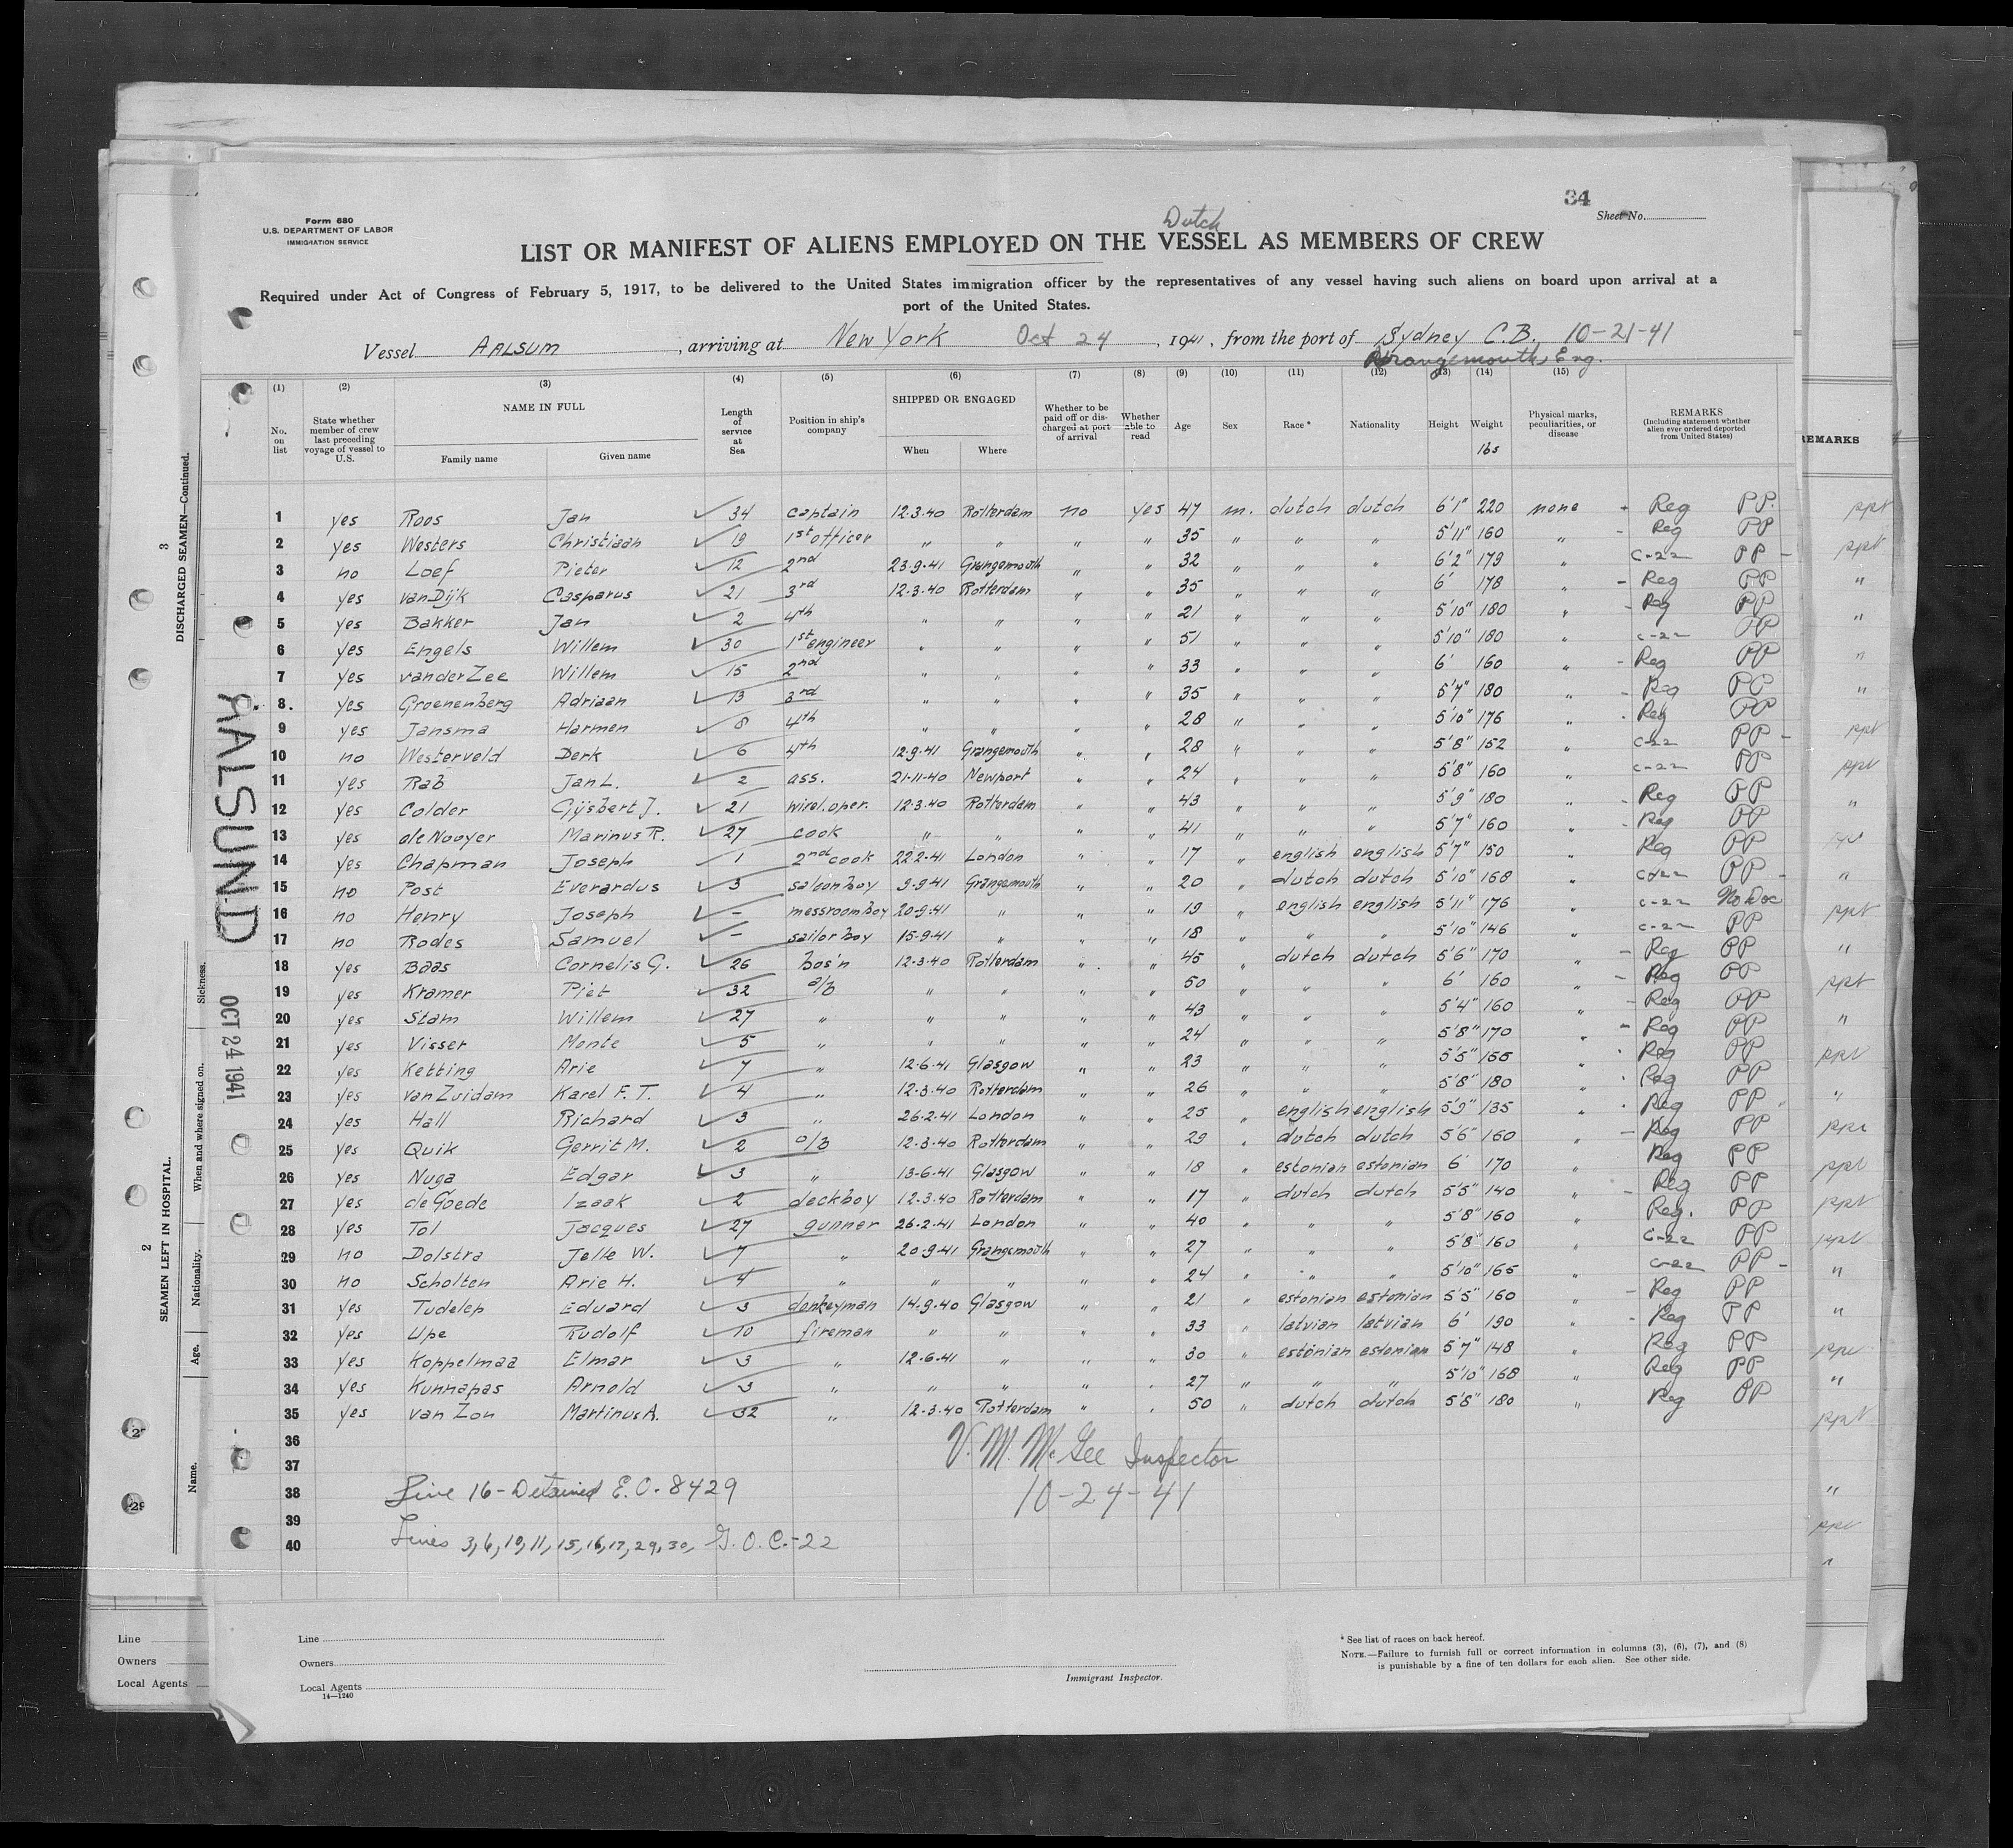 34
Form 680
U.S. DEPARTMENT OF LABOR
IMMIGRATION SERVICE
Sheet No.
Dutch
LIST OR MANIFEST OF ALIENS EMPLOYED ON THE VESSEL AS MEMBERS OF CREW
Required under Act of Congress of February 5, 1917, to be delivered to the United States immigration officer by the representatives of any vessel having such aliens on board upon arrival at a
port of the United States.
Vessel AALSUM, arriving at New York Oct 24, 1941, from the port of Sydney C.B. 10-21-41
Grangemouth, Eng.
(1) (2) (3) (4) (5) (6) (7) (8) (9) (10) (11) (12) (13) (14) (15)
No. on list
State whether member of crew last preceding voyage of vessel to U.S.
NAME IN FULL
Family name Given name
Length of service at Sea
Position in ship's company
SHIPPED OR ENGAGED
When Where
Whether to be paid off or discharged at port of arrival
Whether able to read
Age
Sex
Race *
Nationality
Height
Weight
lbs
Physical marks, peculiarities, or disease
REMARKS
(Including statement whether alien ever ordered deported from United States)
1 yes Roos Jan ✓ 34 captain 12-3-40 Rotterdam no yes 47 m. dutch dutch 6'1" 220 none Reg PP.
2 yes Westers Christiaan ✓ 19 1st officer " " " " 35 " " " 5'11" 160 " - Reg PP
3 no Loef Pieter ✓ 12 2nd 23-9-41 Grangemouth " " 32 " " " 6'2" 179 " C-22 PP -
4 yes van Dijk Casparus ✓ 21 3rd 12-3-40 Rotterdam " " 35 " " " 6' 178 " - Reg PP
5 yes Bakker Jan ✓ 2 4th " " " " 21 " " " 5'10" 180 " - Reg PP
6 yes Engels Willem ✓ 30 1st engineer " " " " 51 " " " 5'10" 180 " C-22 PP
7 yes van der Zee Willem ✓ 15 2nd " " " " 33 " " " 6' 160 " - Reg PP
8. yes Groenenberg Adriaan ✓ 13 3rd " " " " 35 " " " 5'7" 180 " - Reg PP
9 yes Jansma Harmen ✓ 8 4th " " " " 28 " " " 5'10" 176 " - Reg PP
10 no Westerveld Derk ✓ 6 4th 12-9-41 Grangemouth " " 28 " " " 5'8" 152 " C-22 PP -
11 yes Rab Jan L. ✓ 2 ass. 21-11-40 Newport " " 24 " " " 5'8" 160 " C-22 PP
12 yes Colder Gijsbert J. ✓ 21 wirel. oper. 12-3-40 Rotterdam " " 43 " " " 5'9" 180 " - Reg PP
13 yes de Nooyer Marinus R. ✓ 27 cook " " " " 41 " " " 5'7" 160 " - Reg PP
14 yes Chapman Joseph ✓ 1 2nd cook 22-2-41 London " " 17 " english english 5'7" 150 " Reg PP
15 no Post Everardus ✓ 3 saloonboy 9-9-41 Grangemouth " " 20 " dutch dutch 5'10" 168 " C-22 PP -
16 no Henry Joseph ✓ - messroomboy 20-9-41 " " " 19 " english english 5'11" 176 " C-22 No Doc
17 no Rodes Samuel ✓ - sailor boy 15-9-41 " " " 18 " " " 5'10" 146 " C-22 PP
18 yes Baas Cornelis G. ✓ 26 bos'n 12-3-40 Rotterdam " " 45 " dutch dutch 5'6" 170 " - Reg PP
19 yes Kramer Piet ✓ 32 a/b " " " " 50 " " " 6' 160 " - Reg PP
20 yes Stam Willem ✓ 27 " " " " " 43 " " " 5'4" 160 " - Reg PP
21 yes Visser Monte ✓ 5 " " " " " 24 " " " 5'8" 170 " - Reg PP
22 yes Ketting Arie ✓ 7 " 12-6-41 Glasgow " " 23 " " " 5'5" 165 " Reg PP
23 yes van Zuidam Karel F. T. ✓ 4 " 12-3-40 Rotterdam " " 26 " " " 5'8" 180 " Reg PP
24 yes Hall Richard ✓ 3 " 26-2-41 London " " 25 " english english 5'9" 135 " Reg PP
25 yes Quik Gerrit M. ✓ 2 o/b 12-3-40 Rotterdam " " 29 " dutch dutch 5'6" 160 " - Reg PP
26 yes Nuga Edgar ✓ 3 " 13-6-41 Glasgow " " 18 " estonian estonian 6' 170 " Reg PP
27 yes de Goede Izaak ✓ 2 deckboy 12-3-40 Rotterdam " " 17 " dutch dutch 5'5" 140 " - Reg PP
28 yes Tol Jacques ✓ 27 gunner 26-2-41 London " " 40 " " " 5'8" 160 " Reg. PP
29 no Dolstra Jelle W. ✓ 7 " 20-9-41 Grangemouth " " 27 " " " 5'8" 160 " C-22 PP
30 no Scholten Arie H. ✓ 4 " " " " " 24 " " " 5'10" 165 " C-22 PP -
31 yes Tudeleh Eduard ✓ 3 donkeyman 14-9-40 Glasgow " " 21 " estonian estonian 5'5" 160 " - Reg PP
32 yes Upe Rudolf ✓ 10 fireman " " " " 33 " latvian latvian 6' 190 " - Reg PP
33 yes Koppelmaa Elmar ✓ 3 " 12-6-41 " " " 30 " estonian estonian 5'7" 148 " Reg PP
34 yes Kunnapas Arnold ✓ 3 " " " " " 27 " " " 5'10" 168 " Reg PP
35 yes van Zon Martinus A. ✓ 32 " 12-3-40 Rotterdam " " 50 " dutch dutch 5'8" 180 " Reg PP
36
37
38
39
40
V. M. McGee Inspector
10-24-41
Line 16 - Detained E.O. 8429
Lines 3, 6, 10, 11, 15, 16, 17, 29, 30, G. O. C.-22
Line
Owners
Local Agents
14—1240
Immigrant Inspector.
* See list of races on back hereof.
NOTE.—Failure to furnish full or correct information in columns (3), (6), (7), and (8)
is punishable by a fine of ten dollars for each alien. See other side.
AALSUND
OCT 24 1941
3
DISCHARGED SEAMEN—Continued.
2
SEAMEN LEFT IN HOSPITAL.
Sickness.
When and where signed on.
Nationality.
Age.
Name.
Line
Owners
Local Agents
REMARKS
ppt